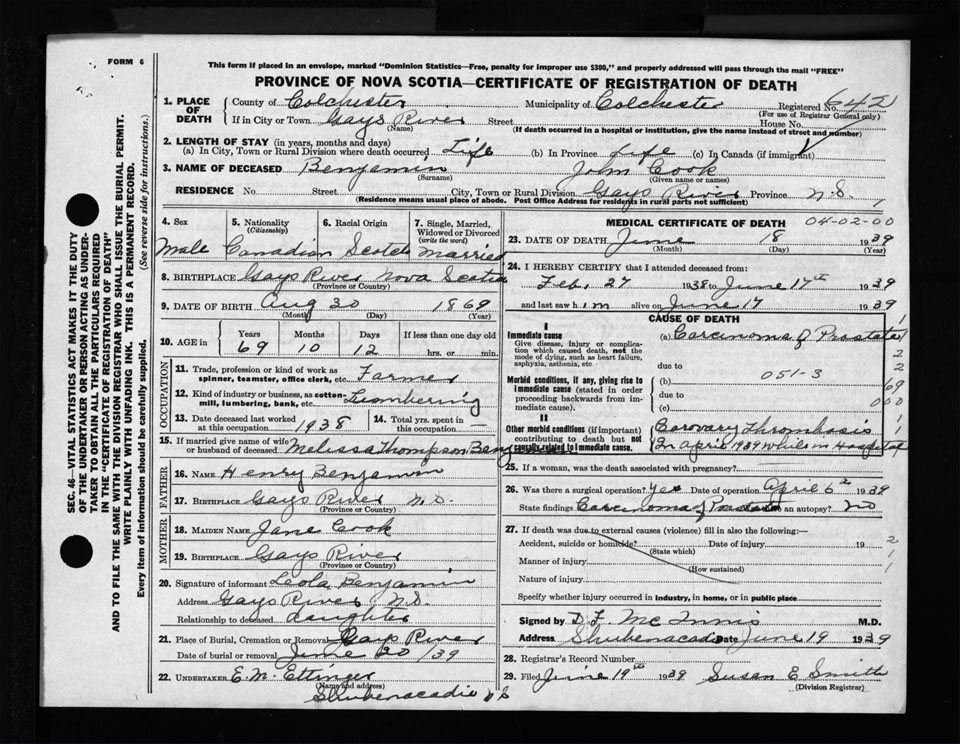 FORM 6
This form if placed in an envelope, marked "Dominion Statistics—Free, penalty for improper use $300," and properly addressed will pass through the mail "FREE"
PROVINCE OF NOVA SCOTIA—CERTIFICATE OF REGISTRATION OF DEATH
1. PLACE OF DEATH County of Colchester Municipality of Colchester Registered No. 642
(For use of Registrar General only)
If in City or Town Gays River Street House No.
(Name) (If death occurred in a hospital or institution, give the name instead of street and number)
2. LENGTH OF STAY (in years, months and days)
(a) In City, Town or Rural Division where death occurred Life (b) In Province Life (c) In Canada (if immigrant)
3. NAME OF DECEASED Benjamin John Cook
(Surname) (Given name or names)
RESIDENCE No Street City, Town or Rural Division Gays River Province N.S.
(Residence means usual place of abode. Post Office Address for residents in rural parts not sufficient)
4. Sex 5. Nationality (Citizenship) 6. Racial Origin 7. Single, Married, Widowed or Divorced (write the word)
Male Canadian Scotch Married
8. BIRTHPLACE Gays River Nova Scotia
(Province or Country)
9. DATE OF BIRTH Aug 30 1869
(Month) (Day) (Year)
10. AGE in Years Months Days If less than one day old
69 10 12 hrs. or min.
OCCUPATION
11. Trade, profession or kind of work as spinner, teamster, office clerk, etc. Farmer
12. Kind of industry or business, as cotton-mill, lumbering, bank, etc. Lumbering
13. Date deceased last worked at this occupation 1938 14. Total yrs. spent in this occupation —
15. If married give name of wife or husband of deceased Melissa Thompson Benjamin
FATHER
16. NAME Henry Benjamin
17. BIRTHPLACE Gays River N.S.
(Province or Country)
MOTHER
18. MAIDEN NAME Jane Cook
19. BIRTHPLACE Gays River
(Province or Country)
20. Signature of informant Leola Benjamin
Address Gays River N.S.
Relationship to deceased daughter
21. Place of Burial, Cremation or Removal Gays River
Date of burial or removal June 20 /39
22. UNDERTAKER E. M. Ettinger
(Name and address)
Shubenacadie N S
MEDICAL CERTIFICATE OF DEATH 04-02-00
23. DATE OF DEATH June 18 1939
(Month) (Day) (Year)
24. I HEREBY CERTIFY that I attended deceased from:
Feb. 27 1938 to June 17th 1939
and last saw him alive on June 17 1939
CAUSE OF DEATH
I
Immediate cause (a) Carcinoma of Prostate
Give disease, injury or complication which caused death, not the mode of dying, such as heart failure, asphyxia, asthenia, etc
due to
Morbid conditions, if any, giving rise to immediate cause (stated in order proceeding backwards from immediate cause). (b) 051-3
due to
(c)
II
Other morbid conditions (if important) contributing to death but not causally related to immediate cause.
Coronary Thrombosis
In April 1939 while in Hospital
25. If a woman, was the death associated with pregnancy?
26. Was there a surgical operation? yes Date of operation April 6th 1939
State findings Carcinoma of Prostate an autopsy? No
27. If death was due to external causes (violence) fill in also the following:—
Accident, suicide or homicide? Date of injury 19
(State which)
Manner of injury
(How sustained)
Nature of injury
Specify whether injury occurred in industry, in home, or in public place
Signed by D F McInnis M.D.
Address Shubenacadie Date June 19 1939
28. Registrar's Record Number
29. Filed June 19th 1939 Susan E Smith
(Division Registrar)
SEC. 46—VITAL STATISTICS ACT MAKES IT THE DUTY
OF THE UNDERTAKER OR PERSON ACTING AS UNDER-
TAKER TO OBTAIN ALL THE PARTICULARS REQUIRED
IN THE "CERTIFICATE OF REGISTRATION OF DEATH"
AND TO FILE THE SAME WITH THE DIVISION REGISTRAR WHO SHALL ISSUE THE BURIAL PERMIT.
WRITE PLAINLY WITH UNFADING INK. THIS IS A PERMANENT RECORD.
Every item of information should be carefully supplied. (See reverse side for instructions.)